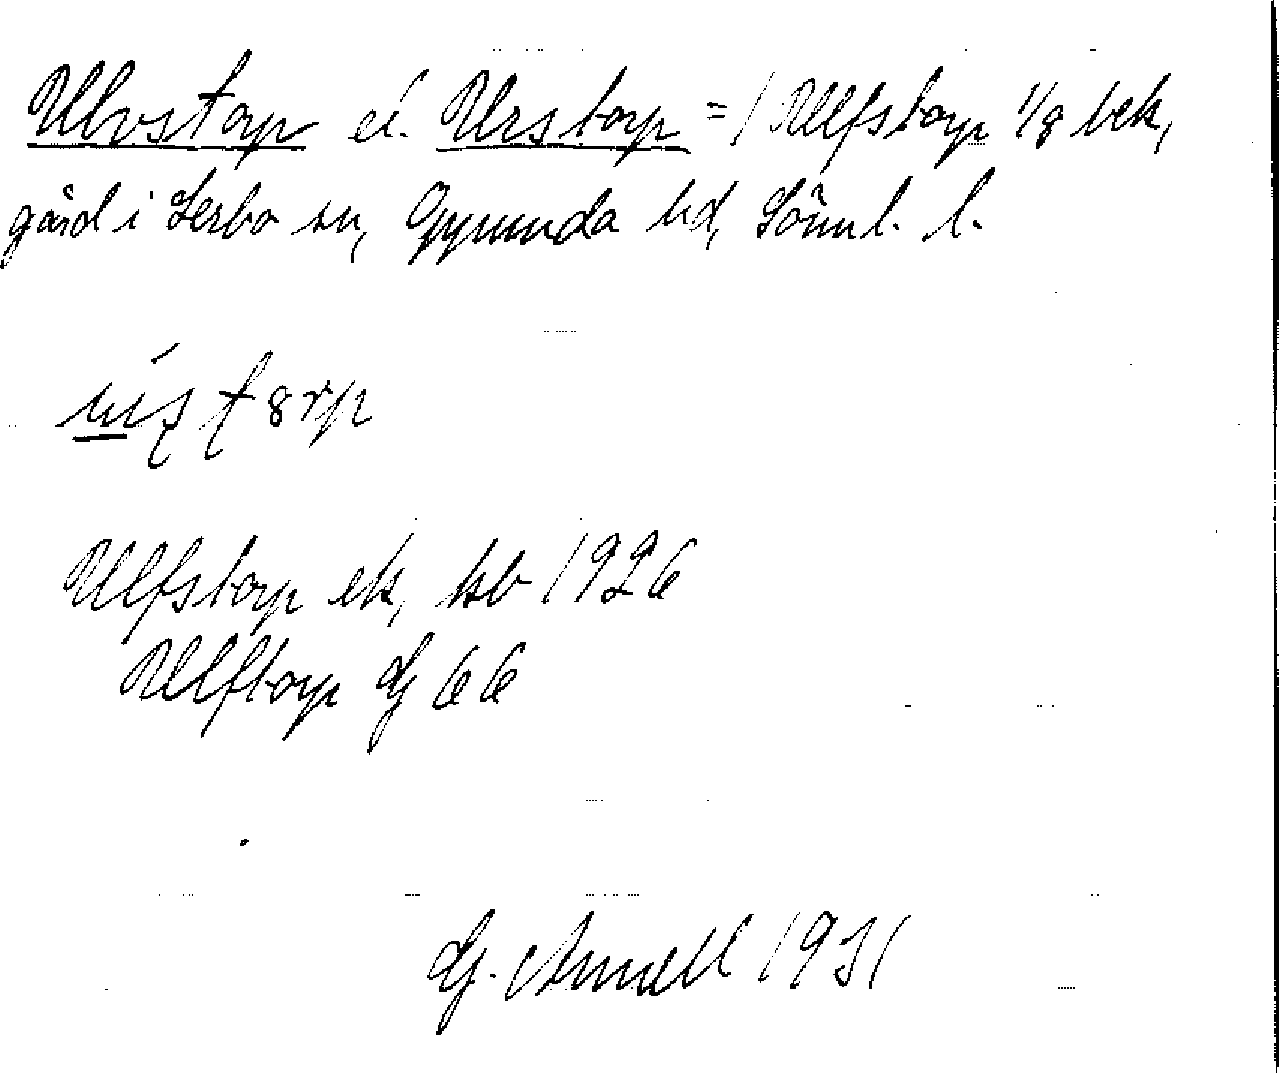 Ulvstorp el. Urstorp = / Ulfstorp 1/8 bek,
gård i Lerbo sn, Oppunda hd, Söml. l.
Ulfstorp ek, kb 1926
Ulftorp Lj 66
Lj. Arnell 1931